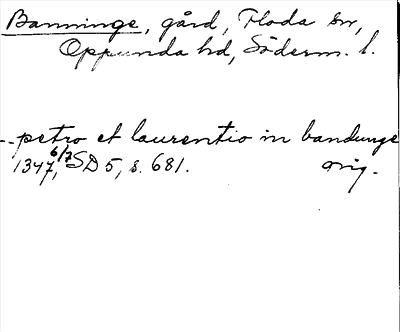 Banninge, gård, Floda sn,
Oppunda hd, Söderm. l.
-- petro et laurentio in bandunge
1347, 6/7 SD 5, s. 681. orig.